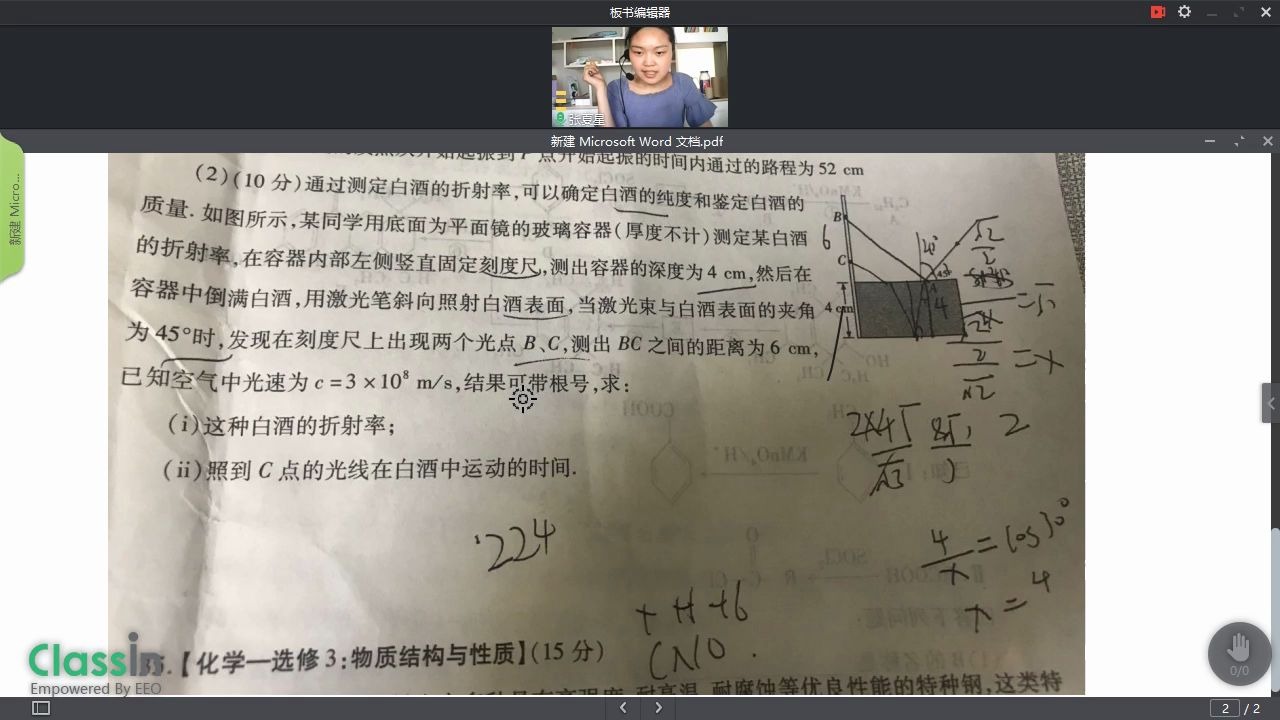 板书编辑器
张夏星
新建 Microsoft Word 文档.pdf
新建 Micro...
点开始起振的时间内通过的路程为 52 cm
(2)(10 分)通过测定白酒的折射率,可以确定白酒的纯度和鉴定白酒的
质量. 如图所示,某同学用底面为平面镜的玻璃容器(厚度不计)测定某白酒
的折射率,在容器内部左侧竖直固定刻度尺,测出容器的深度为 4 cm,然后在
容器中倒满白酒,用激光笔斜向照射白酒表面,当激光束与白酒表面的夹角
为 45°时,发现在刻度尺上出现两个光点 B、C,测出 BC 之间的距离为 6 cm,
已知空气中光速为 c=3×10⁸ m/s,结果可带根号,求:
(ⅰ)这种白酒的折射率;
(ⅱ)照到 C 点的光线在白酒中运动的时间.
B
6
C
A
4 cm
4
45°
√2
2
2
4/x = cos30°
x = 4
224
CNO
.【化学一选修 3:物质结构与性质】(15 分)
耐高温、耐腐蚀等优良性能的特种钢,这类特
ClassIn
Empowered By EEO
0/0
2 / 2